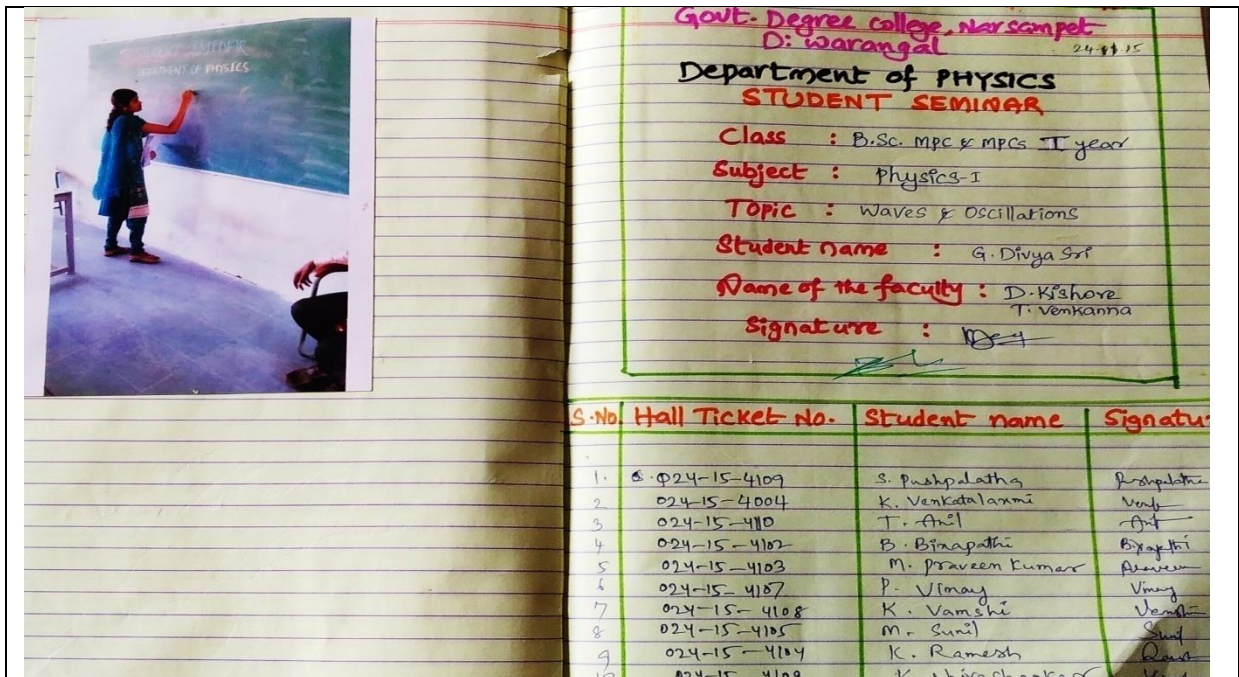 STUDENT SEMINAR
DEPARTMENT OF PHYSICS
Govt. Degree college, Narsampet
D: warangal
24.11.15
Department of PHYSICS
STUDENT SEMINAR
Class : B.Sc. MPC & MPCs I year
Subject : Physics-I
Topic : Waves & Oscillations
Student name : G. Divya Sri
Name of the faculty : D. Kishore
T. Venkanna
Signature :
S.No. Hall Ticket No. Student name Signatu
1. 024-15-4109 S. Pushpalatha Pushpalatha
2 024-15-4004 K. Venkatalaxmi
3 024-15-4110 T. Anil Anil
4 024-15-4102 B. Bixapathi Bixapathi
5 024-15-4103 M. Praveen Kumar Praveen
6 024-15-4107 P. Vimay Vimay
7 024-15-4108 K. Vamshi Vamshi
8 024-15-4105 M. Sunil Sunil
9 024-15-4104 K. Ramesh